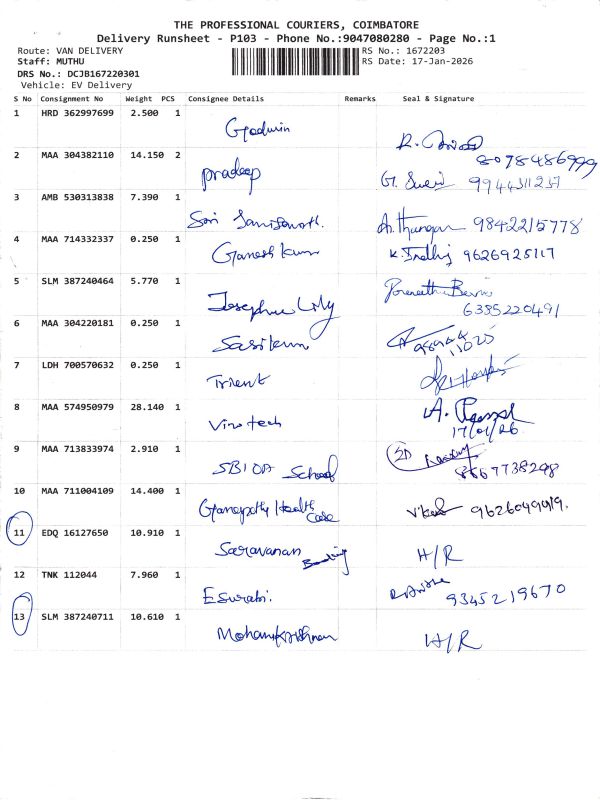 THE PROFESSIONAL COURIERS, COIMBATORE
Delivery Runsheet - P103 - Phone No.:9047080280 - Page No.:1
Route: VAN DELIVERY RS No.: 1672203
Staff: MUTHU RS Date: 17-Jan-2026
DRS No.: DCJB167220301
Vehicle: EV Delivery
S No Consignment No Weight PCS Consignee Details Remarks Seal & Signature
1 HRD 362997699 2.500 1
Godwin
2 MAA 304382110 14.150 2 8078486999
pradeep 9944311237
3 AMB 530313838 7.390 1
Sori A. Thangam 9842215778
4 MAA 714332337 0.250 1
Ganesh Kum 9626925117
5 SLM 387240464 5.770 1
Josephine Lily 6385220491
6 MAA 304220181 0.250 1
Sasikum 11025
7 LDH 700570632 0.250 1
Trient
8 MAA 574950979 28.140 1 A.
Viro tech 17/01/26
9 MAA 713833974 2.910 1
SBIOA School 8667738298
10 MAA 711004109 14.400 1
Ganapathy Health Care 9626049919.
11 EDQ 16127650 10.910 1
Saravanan H/R
12 TNK 112044 7.960 1
Esurabi. 9345219670
13 SLM 387240711 10.610 1
Mohankrishnan H/R